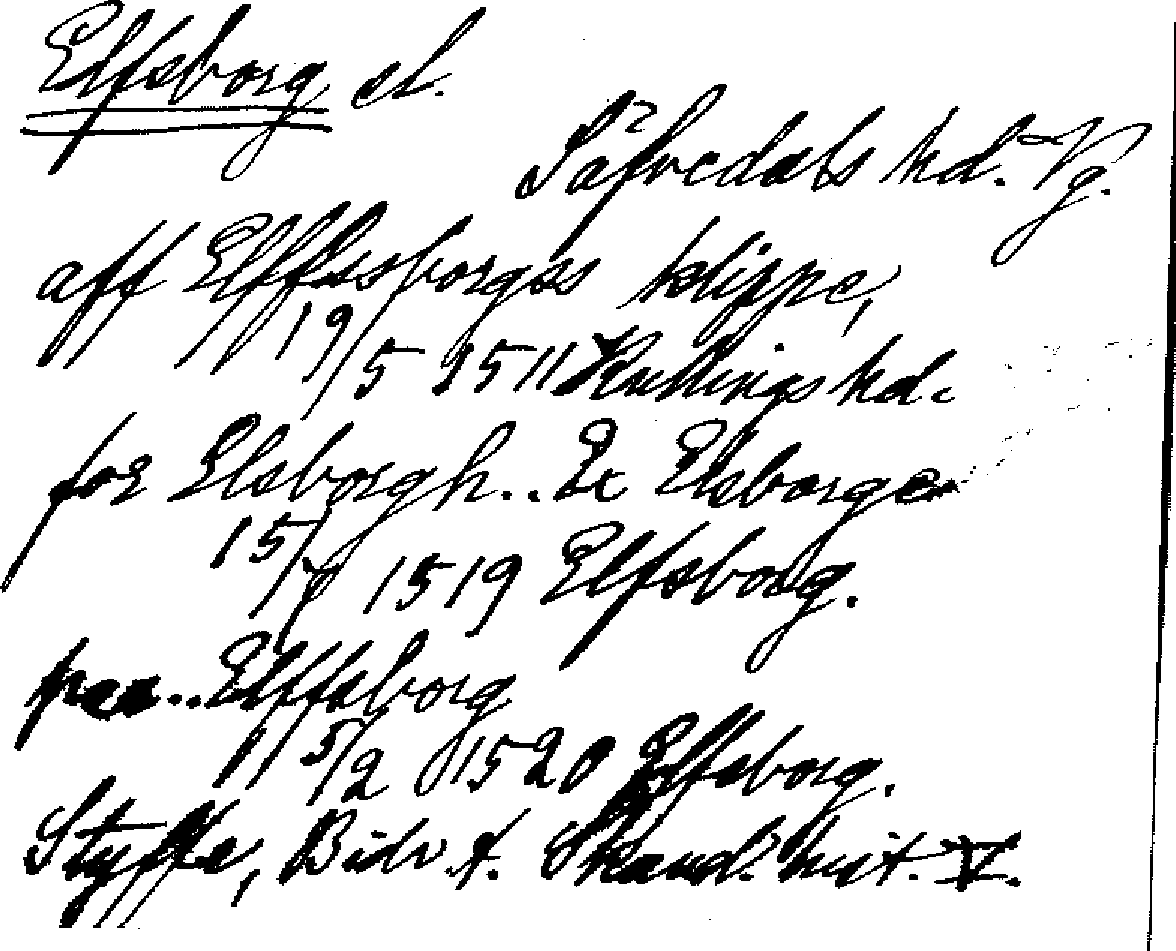 Elfsborg, sl.
Säfvedals hd. Vg.
aff Elffssborgss klippe,
19/5 1511 Kullings hd.
for Elsborgh.. Ex Elsborge
15/7 1519 Elfsborg.
paa.. Elffsborg
15/2 1520 Elfsborg.
Styffe, Bidr. t. Skand. hist. V.